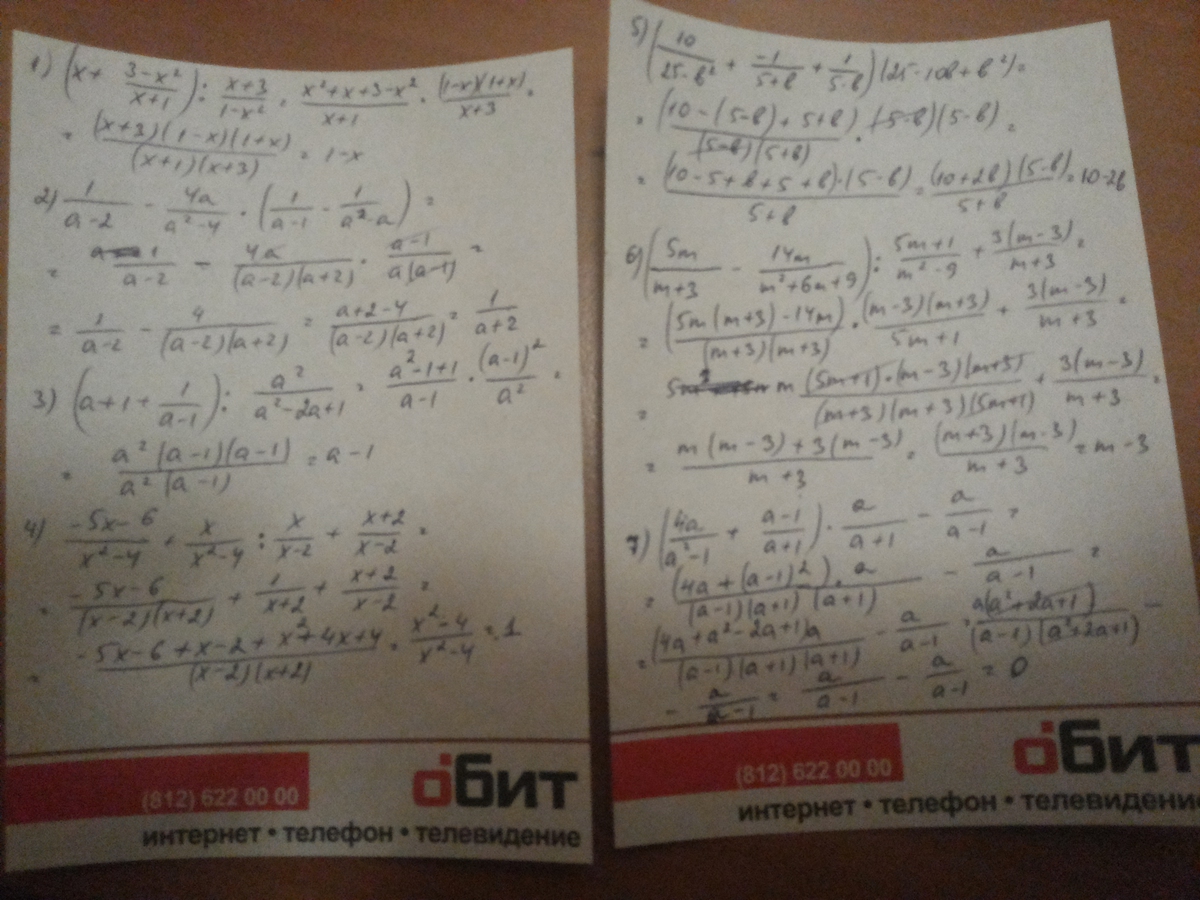 1) (x + (3-x²)/(x+1)) : (x+3)/(1-x²) = (x²+x+3-x²)/(x+1) · ((1-x)(1+x))/(x+3) =
= ((x+3)(1-x)(1+x))/((x+1)(x+3)) = 1-x
2) 1/(a-2) - 4a/(a²-4) · (1/(a-1) - 1/(a²-a)) =
= 1/(a-2) - 4a/((a-2)(a+2)) · (a-1)/(a(a-1)) =
= 1/(a-2) - 4/((a-2)(a+2)) = (a+2-4)/((a-2)(a+2)) = 1/(a+2)
3) (a+1+1/(a-1)) : a²/(a²-2a+1) = (a²-1+1)/(a-1) · (a-1)²/a² =
= (a²(a-1)(a-1))/(a²(a-1)) = a-1
4) (-5x-6)/(x²-4) + x/(x²-4) : x/(x-2) + (x+2)/(x-2) =
= (-5x-6)/((x-2)(x+2)) + 1/(x+2) + (x+2)/(x-2) =
= (-5x-6+x-2+x²+4x+4)/((x-2)(x+2)) = (x²-4)/(x²-4) = 1
(812) 622 00 00
обит
интернет • телефон • телевидение
5) (10/(25-b²) + -1/(5+b) + 1/(5-b)) (25-10b+b²) =
= (10-(5-b)+5+b)/((5-b)(5+b)) · (5-b)(5-b) =
= ((10-5+b+5+b)·(5-b))/(5+b) = ((10+2b)(5-b))/(5+b) = 10-2b
6) (5m/(m+3) - 14m/(m²+6m+9)) : (5m+1)/(m²-9) + (3(m-3))/(m+3) =
= (5m(m+3)-14m)/((m+3)(m+3)) · ((m-3)(m+3))/(5m+1) + (3(m-3))/(m+3) =
= (m(5m+1)·(m-3)(m+3))/((m+3)(m+3)(5m+1)) + (3(m-3))/(m+3) =
= (m(m-3)+3(m-3))/(m+3) = ((m+3)(m-3))/(m+3) = m-3
7) (4a/(a²-1) + (a-1)/(a+1)) · a/(a+1) - a/(a-1) =
= ((4a+(a-1)²)·a)/((a-1)(a+1)(a+1)) - a/(a-1) =
= ((4a+a²-2a+1)a)/((a-1)(a+1)(a+1)) - a/(a-1) = (a(a²+2a+1))/((a-1)(a²+2a+1)) -
- a/(a-1) = a/(a-1) - a/(a-1) = 0
(812) 622 00 00
обит
интернет • телефон • телевидение